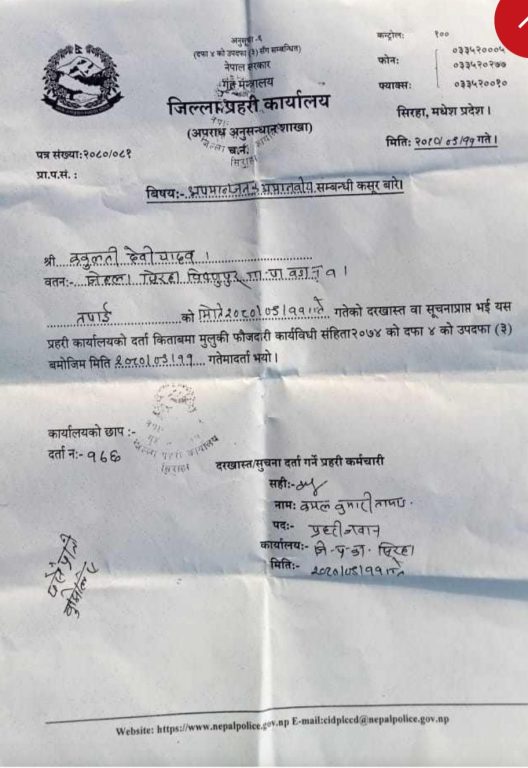 अनुसूची -६
(दफा ४ को उपदफा (३) सँग सम्बन्धित)
नेपाल सरकार
गृह मन्त्रालय
जिल्ला प्रहरी कार्यालय
(अपराध अनुसन्धान शाखा)
सिराहा
कन्ट्रोल: १००
फोन: ०३३५२०००५
०३३५२०२७७
फ्याक्स: ०३३५२००१०
सिरहा, मधेश प्रदेश।
मिति: २०८०/०६/११ गते।
पत्र संख्या:२०८०/०८१
च.नं.
प्रा.प.सं. :
विषय:- सम्बन्धी कसूर बारे।
श्री देवी यादव।
वतन:- जिल्ला सिरहा विष्णुपुर गा.पा वडा नं १।
तपाई को मिति २०८०/०६/११ गते गतेको दरखास्त वा सूचनाप्राप्त भई यस
प्रहरी कार्यालयको दर्ता किताबमा मुलुकी फौजदारी कार्यविधी संहिता२०७४ को दफा ४ को उपदफा (३)
बमोजिम मिति २०८०/०६/११ गतेमादर्ता भयो।
कार्यालयको छाप :-
जिल्ला प्रहरी कार्यालय
सिराहा
दर्ता न:- १६६
दरखास्त/सुचना दर्ता गर्ने प्रहरी कर्मचारी
सही:-
नाम: कमल कुमारी थापा
पद:- प्रहरी जवान
कार्यालय:- जि.प्र.का. सिरहा
मिति:- २०८०/०६/११ गते
Website: https://www.nepalpolice.gov.np E-mail:cidplccd@nepalpolice.gov.np